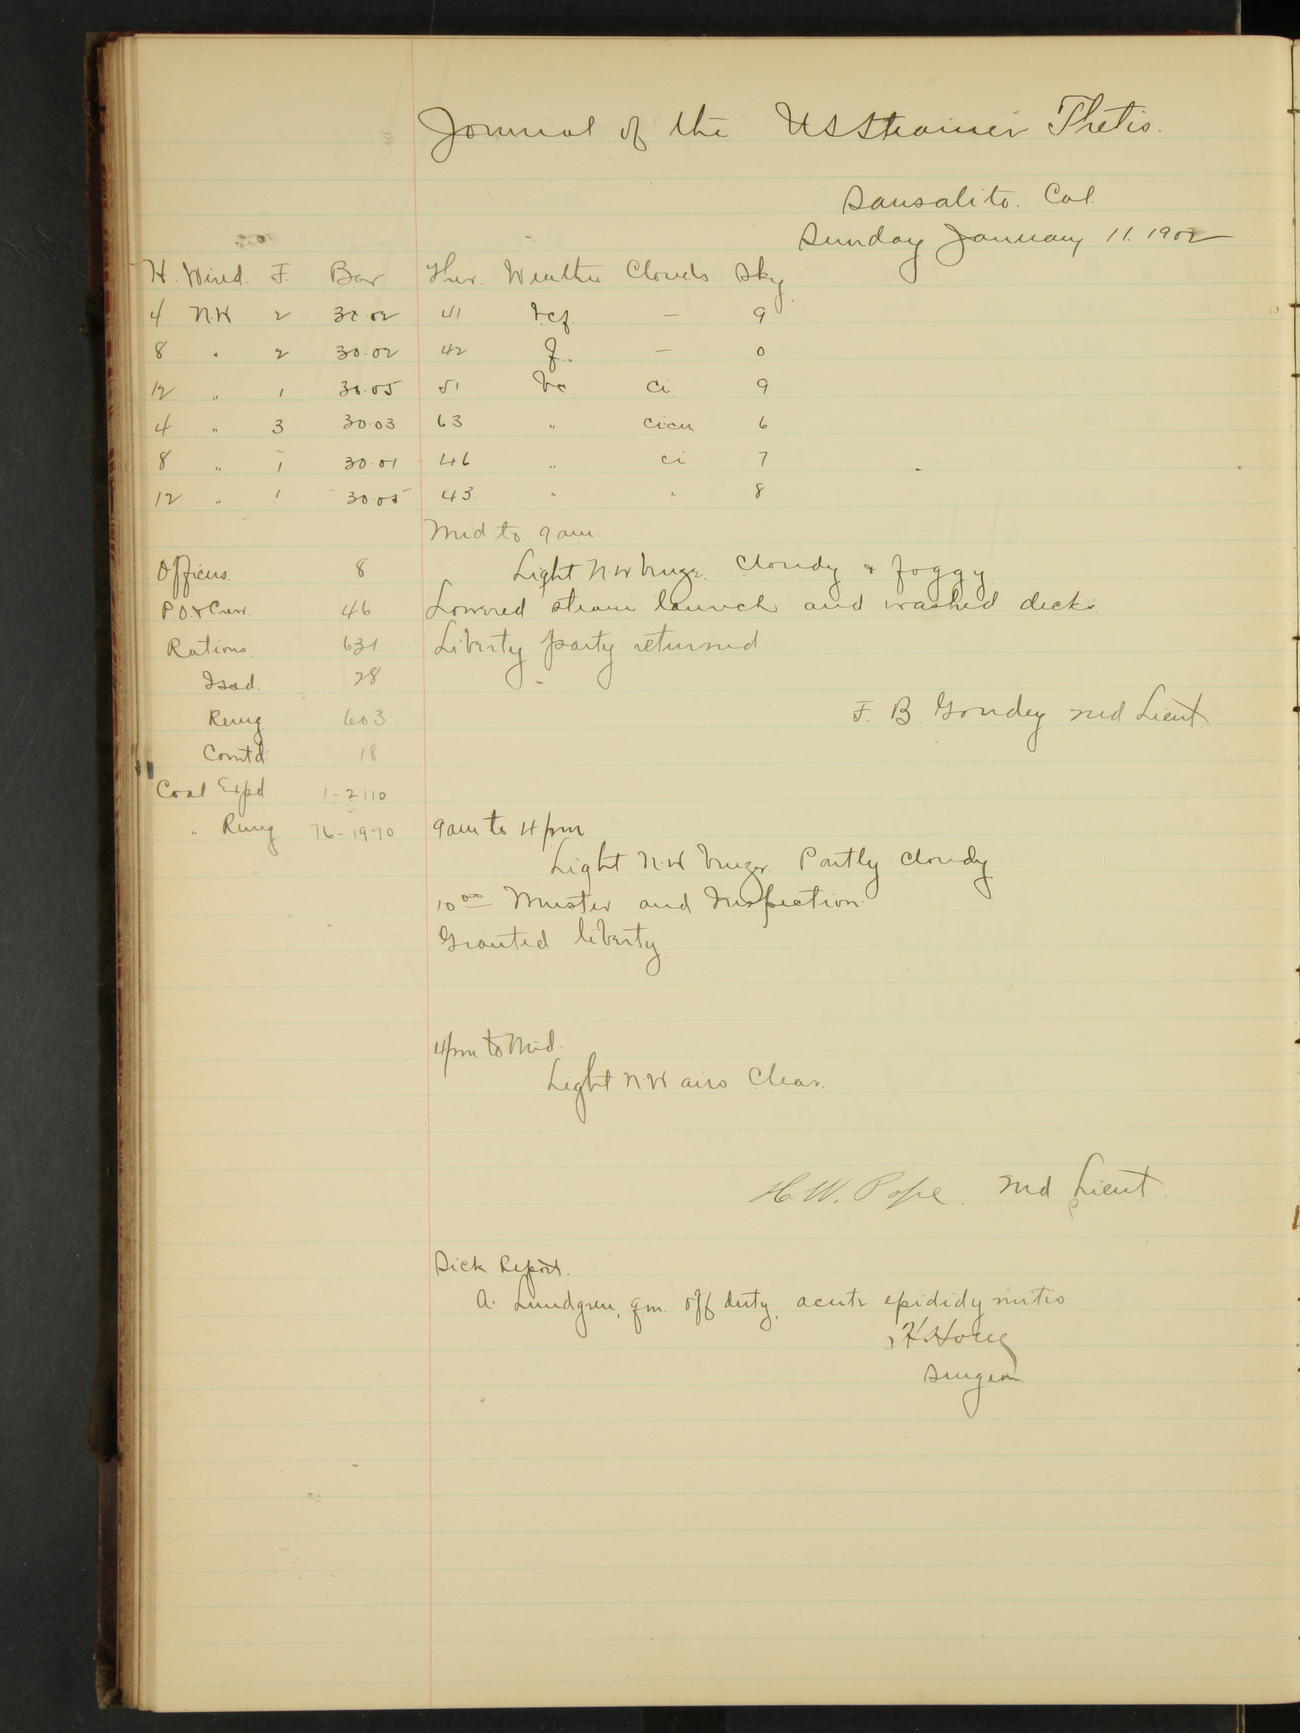 Journal of the US Steamer Thetis.
Sausalito. Cal.
Sunday January 11. 1902
H. Wind. F. Bar Ther. Weather Clouds Sky
4 N.W 2 30.02 41 bcf. — 9
8 " 2 30.02 42 f.. — 0
12 " 1 30.05 51 bc ci. 9
4 " 3 30.03 63 " cicu 6
8 " 1 30.01 46 " ci 7
12 " 1 30.05 43. " " 8
Mid to 9 am.
Officers. 8 Light N.W breeze. Cloudy & foggy
P.O. & Crew. 46 Lowered steam launch and washed decks.
Rations. 631 Liberty party returned
Issd. 28
Remg 603 F. B. 2nd Lieut.
Comtd 18
Coal Expd 1-2110
" Remg 76-1970 9 am to 4 pm
Light N.W breeze. Partly cloudy.
10 00 Muster and Inspection.
Granted liberty.
4 pm to Mid.
Light N.W airs Clear.
H. W. Pope. 2nd Lieut.
Sick Report.
A. Lundgren, qm. off duty, acute epididymitis
Surgeon